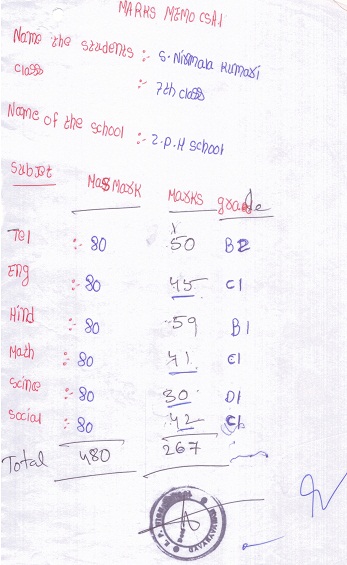 MARKS MEMO CSA1
Name the students :- S. Nirmala Kumari
class :- 7th class
Name of the school :- Z.P.H school
Subjet MaSMARK MARKS grade
Tel :- 80 50 B2
Eng :- 80 45 C1
Hind :- 80 59 B1
Math :- 80 41 C1
Scince :- 80 30 D1
Social :- 80 42 C1
Total 480 267